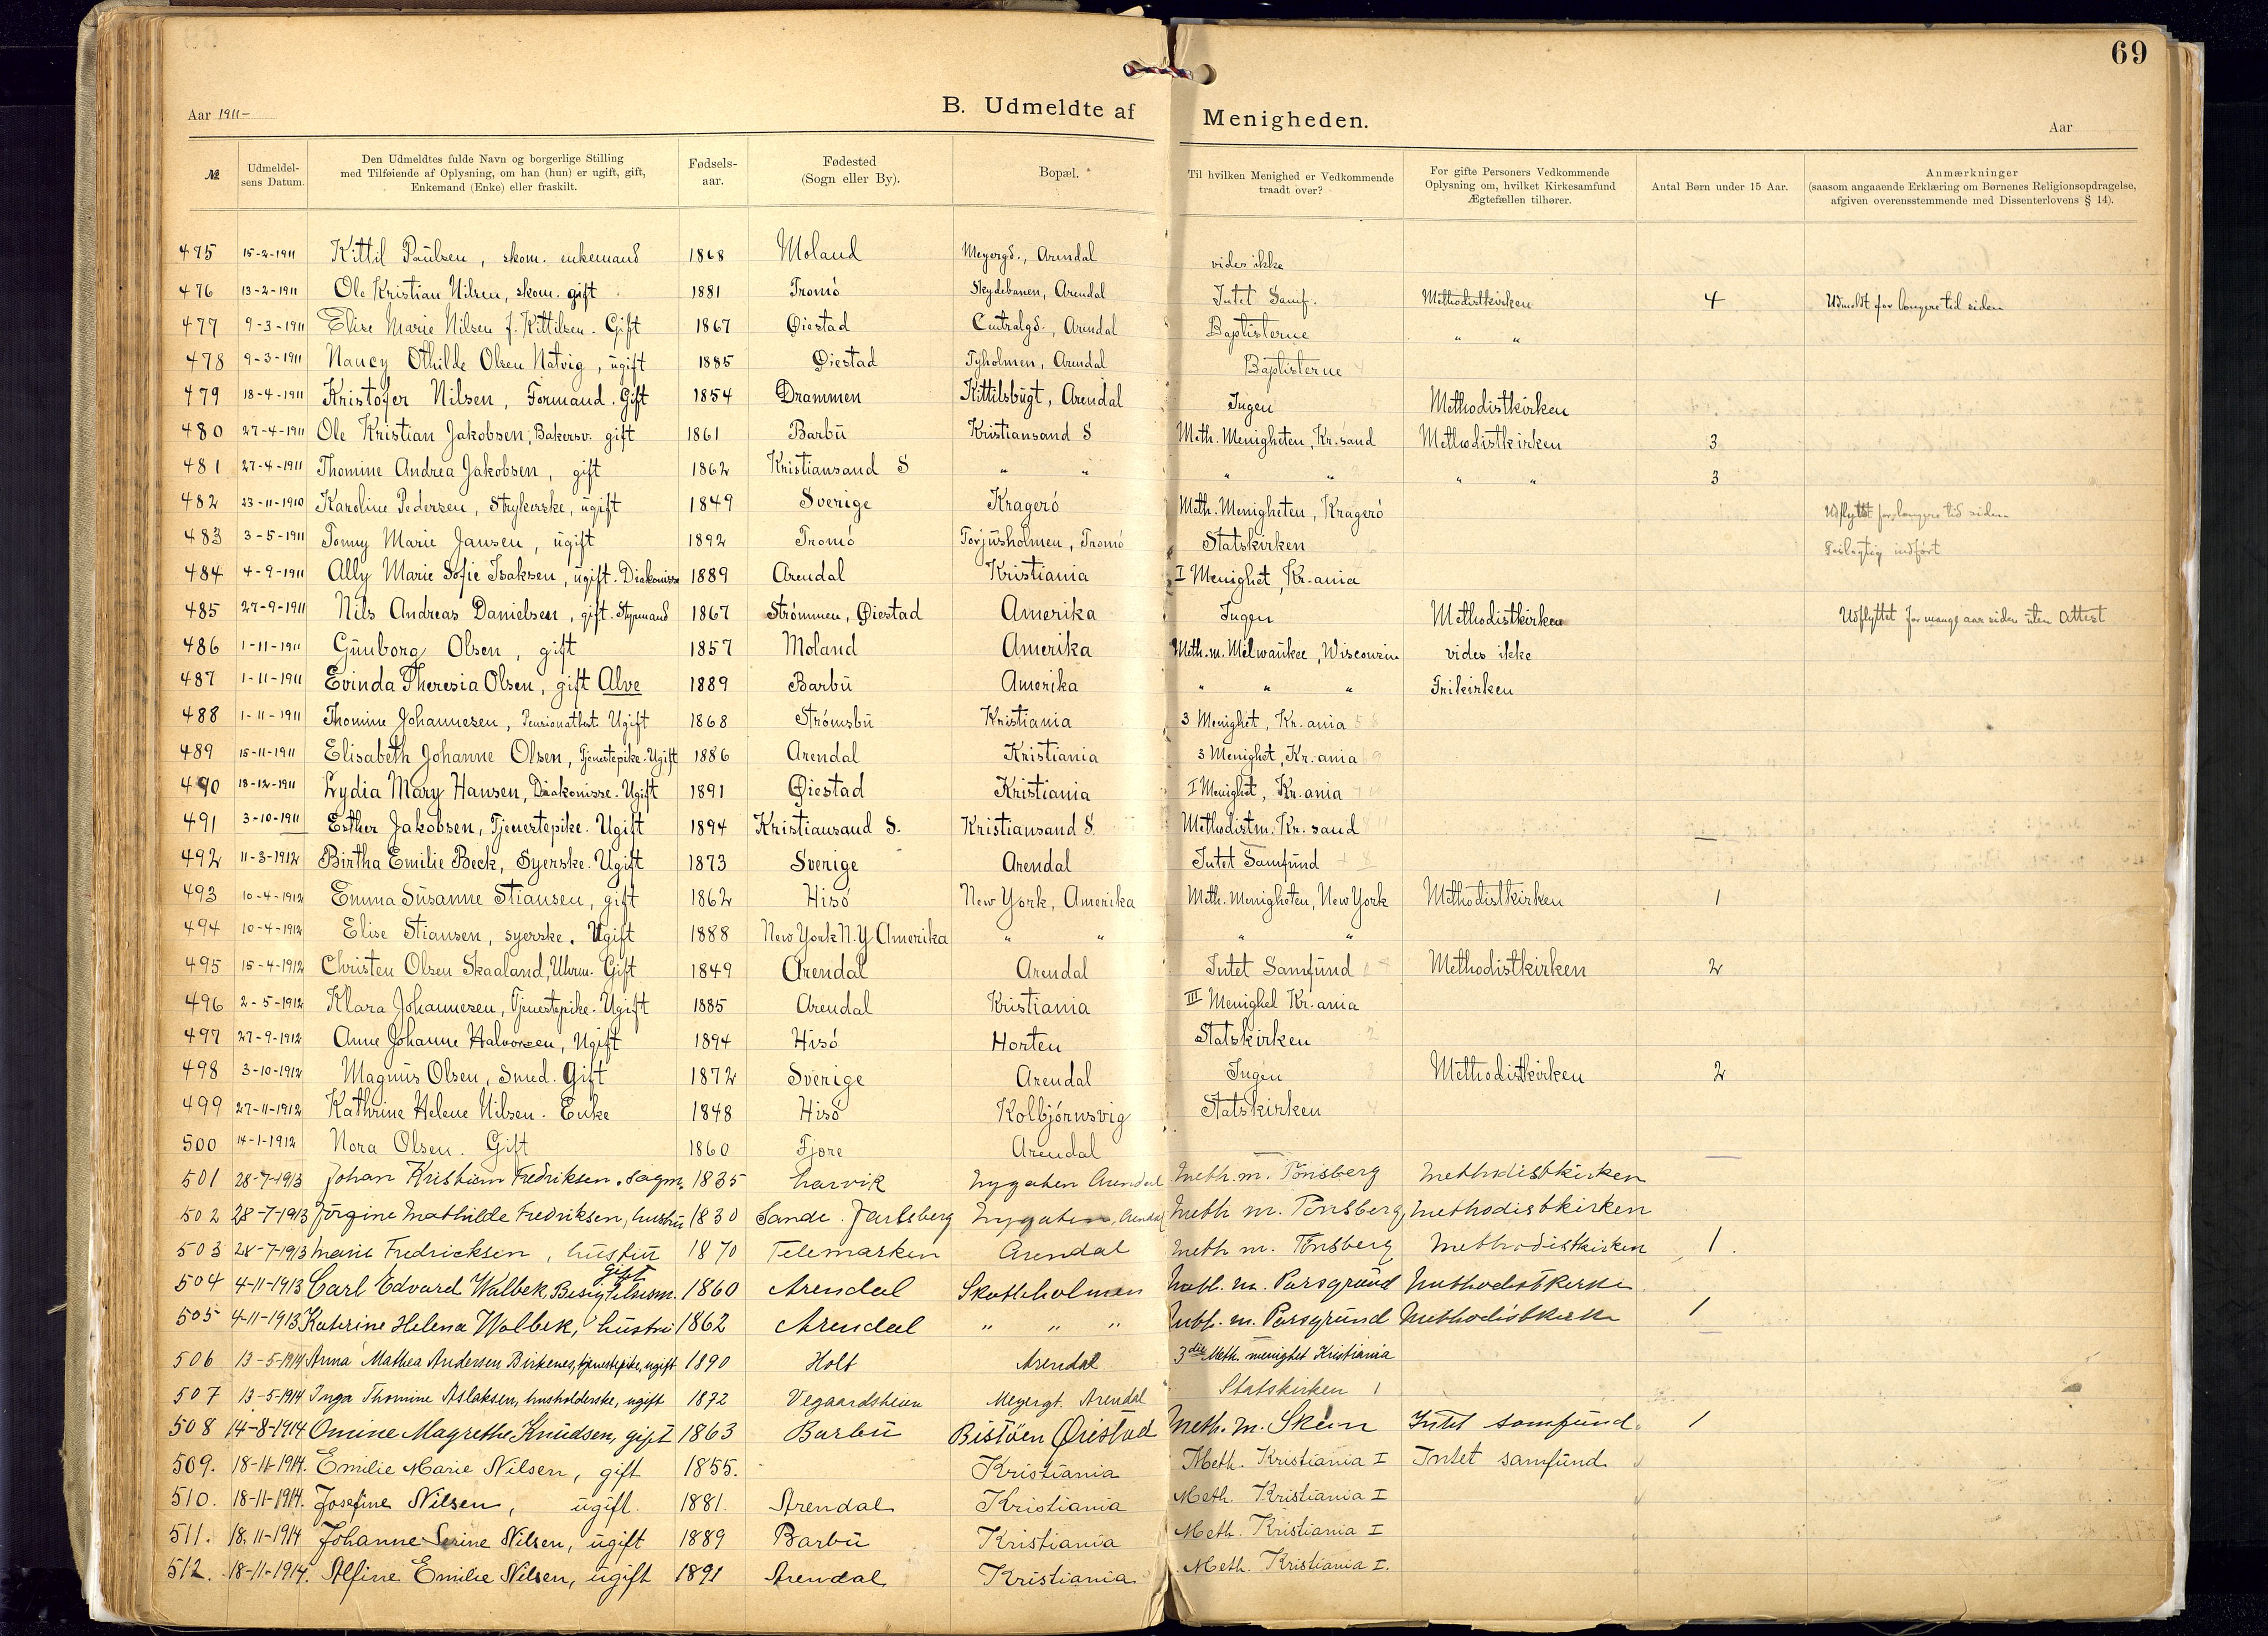 69
Aar 1911-
B. Udmeldte af Menigheden.
Aar
№ Udmeldel-sens Datum. Den Udmeldtes fulde Navn og borgerlige Stilling med Tilføiende af Oplysning, om han (hun) er ugift, gift, Enkemand (Enke) eller fraskilt. Fødsels-aar. Fødested (Sogn eller By). Bopæl. Til hvilken Menighed er Vedkommende traadt over? For gifte Personers Vedkommende Oplysning om, hvilket Kirkesamfund Ægtefællen tilhører. Antal Børn under 15 Aar. Anmærkninger (saasom angaaende Erklæring om Børnenes Religionsopdragelse, afgiven overensstemmende med Dissenterlovens § 14).
475 15-2-1911 Kittil Paulsen, skom. enkemand 1868 Moland Meyergd., Arendal vides ikke
476 13-2-1911 Ole Kristian Nilsen, skom. gift 1881 Tromö Skydebanen, Arendal Intet Samf. Methodistkirken 4 Udmeldt for længere tid siden
477 9-3-1911 Elise Marie Nilsen f. Kittilsen. Gift 1867 Øiestad Centralgd., Arendal Baptisterne " "
478 9-3-1911 Nancy Othilde Olsen Natvig, ugift 1885 Øiestad Tyholmen, Arendal Baptisterne
479 18-4-1911 Kristofer Nilsen, Formand. Gift 1854 Drammen Kittilsbugt, Arendal Ingen Methodistkirken
480 27-4-1911 Ole Kristian Jakobsen, Bakersv. gift 1861 Barbu Kristiansand S Meth. Menigheten, Kr.sand Methodistkirken 3
481 27-4-1911 Thomine Andrea Jakobsen, gift 1862 Kristiansand S " " " " " " 3
482 23-11-1910 Karoline Pedersen, Strykerske, ugift 1849 Sverige Kragerö Meth. Menigheten, Kragerö Udflyttet for længere tid siden
483 3-5-1911 Tomy Marie Jansen, ugift 1892 Tromö Torjusholmen, Tromö Statskirken Feilagtig indført
484 4-9-1911 Ally Marie Sofie Isaksen, ugift. Diakonisse 1889 Arendal Kristiania I Menighet, Kr.ania
485 27-9-1911 Nils Andreas Danielsen, gift. Styrmand 1867 Strömmen, Øiestad Amerika Ingen Methodistkirken Udflyttet for mange aar siden uten attest
486 1-11-1911 Gunborg Olsen, gift 1857 Moland Amerika Meth. m. Milwaukee, Wisconsin vides ikke
487 1-11-1911 Evinda Theresia Olsen, gift Alve 1889 Barbu Amerika " " " Frikirken
488 1-11-1911 Thomine Johannesen, Pensionatbest. Ugift 1868 Strömsbu Kristiania 3 Menighet, Kr.ania
489 15-11-1911 Elisabeth Johanne Olsen, Tjenestepike. Ugift 1886 Arendal Kristiania 3 Menighet, Kr.ania
490 18-12-1911 Lydia Mary Hansen, Diakonisse. Ugift 1891 Øiestad Kristiania I Menighet, Kr.ania
491 3-10-1911 Esther Jakobsen, Tjenestepike. Ugift 1894 Kristiansand S. Kristiansand S. Methodistm. Kr.sand —
492 11-3-1912 Birtha Emilie Beck, Syerske. Ugift 1873 Sverige Arendal Intet Samfund
493 10-4-1912 Emma Susanne Stiansen, gift 1862 Hisö New York, Amerika Meth. Menigheten, New York Methodistkirken 1
494 10-4-1912 Elise Stiansen, syerske. Ugift 1888 New York N.Y Amerika " " " "
495 15-4-1912 Christen Olsen Skaaland, Uhrm. Gift 1849 Arendal Arendal Intet Samfund Methodistkirken 2
496 2-5-1912 Klara Johannesen, Tjenestepike. Ugift 1885 Arendal Kristiania III Menighet Kr.ania
497 27-9-1912 Anne Johanne Halvorsen, Ugift 1894 Hisö Horten Statskirken
498 3-10-1912 Magnus Olsen, Smed. Gift 1872 Sverige Arendal Ingen Methodistkirken 2
499 27-11-1912 Kathrine Helene Nilsen. Enke 1848 Hisö Kolbjörnsvig Statskirken
500 14-1-1912 Nora Olsen. Gift 1860 Fjære Arendal —
501 28-7-1913 Johan Kristian Fredriksen. Sagm. 1835 Larvik Nygaten Arendal Meth. m. Tönsberg Methodistkirken
502 28-7-1913 Jörgine Mathilde Fredriksen, hustru 1830 Sande. Jarlsberg Nygaten, Arendal Meth m. Tönsberg Methodistkirken
503 28-7-1913 Marie Fredricksen, hustru 1870 Telemarken Arendal Meth m. Tönsberg Methodistkirken 1.
504 4-11-1913 Carl Edvard Walbek, Besigtelsesm. gift 1860 Arendal Skotteholmen Meth. m. Porsgrund Methodistkirke
505 4-11-1913 Katrine Helena Walbek, hustru 1862 Arendal " " " Meth. m. Porsgrund Methodistkirke 1
506 13-5-1914 Anna Mathea Andersen Birkenes, tjenestepike, ugift 1890 Holt Arendal 3die Meth. menighet Kristiania
507 13-5-1914 Inga Thomine Aslaksen, husholderske, ugift 1872 Vegaardsheien Meyergt. Arendal Statskirken 1
508 14-8-1914 Omine Magrethe Knudsen, gift 1863 Barbu Bistöen Øiestad Meth. m. Skien Intet samfund. 1
509. 18-11-1914. Emilie Marie Nilsen, gift 1855. Kristiania Meth. Kristiania I Intet samfund
510. 18-11-1914. Josefine Nilsen, ugift. 1881. Arendal Kristiania Meth. Kristiania I
511. 18.11-1914 Johanne Serine Nilsen, ugift 1889 Barbu Kristiania Meth. Kristiania I
512. 18-11-1914. Alfine Emilie Nilsen, ugift 1891 Arendal Kristiania Meth. Kristiania I.